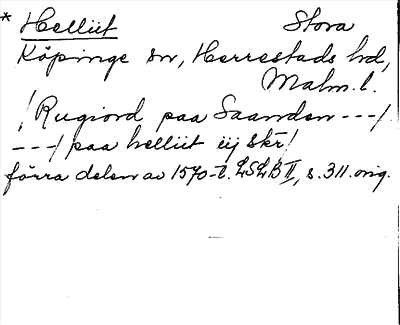 * Hellüt Stora
Köpinge sn, Herrestads hd,
Malm. l.
! Rugiord paa Saanden ---/
---/ paa hellüt iij skr!
förra delen av 1570-t. LSLB II, s. 311. orig.